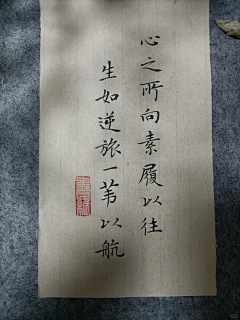 心之所向素履以往
生如逆旅一苇以航